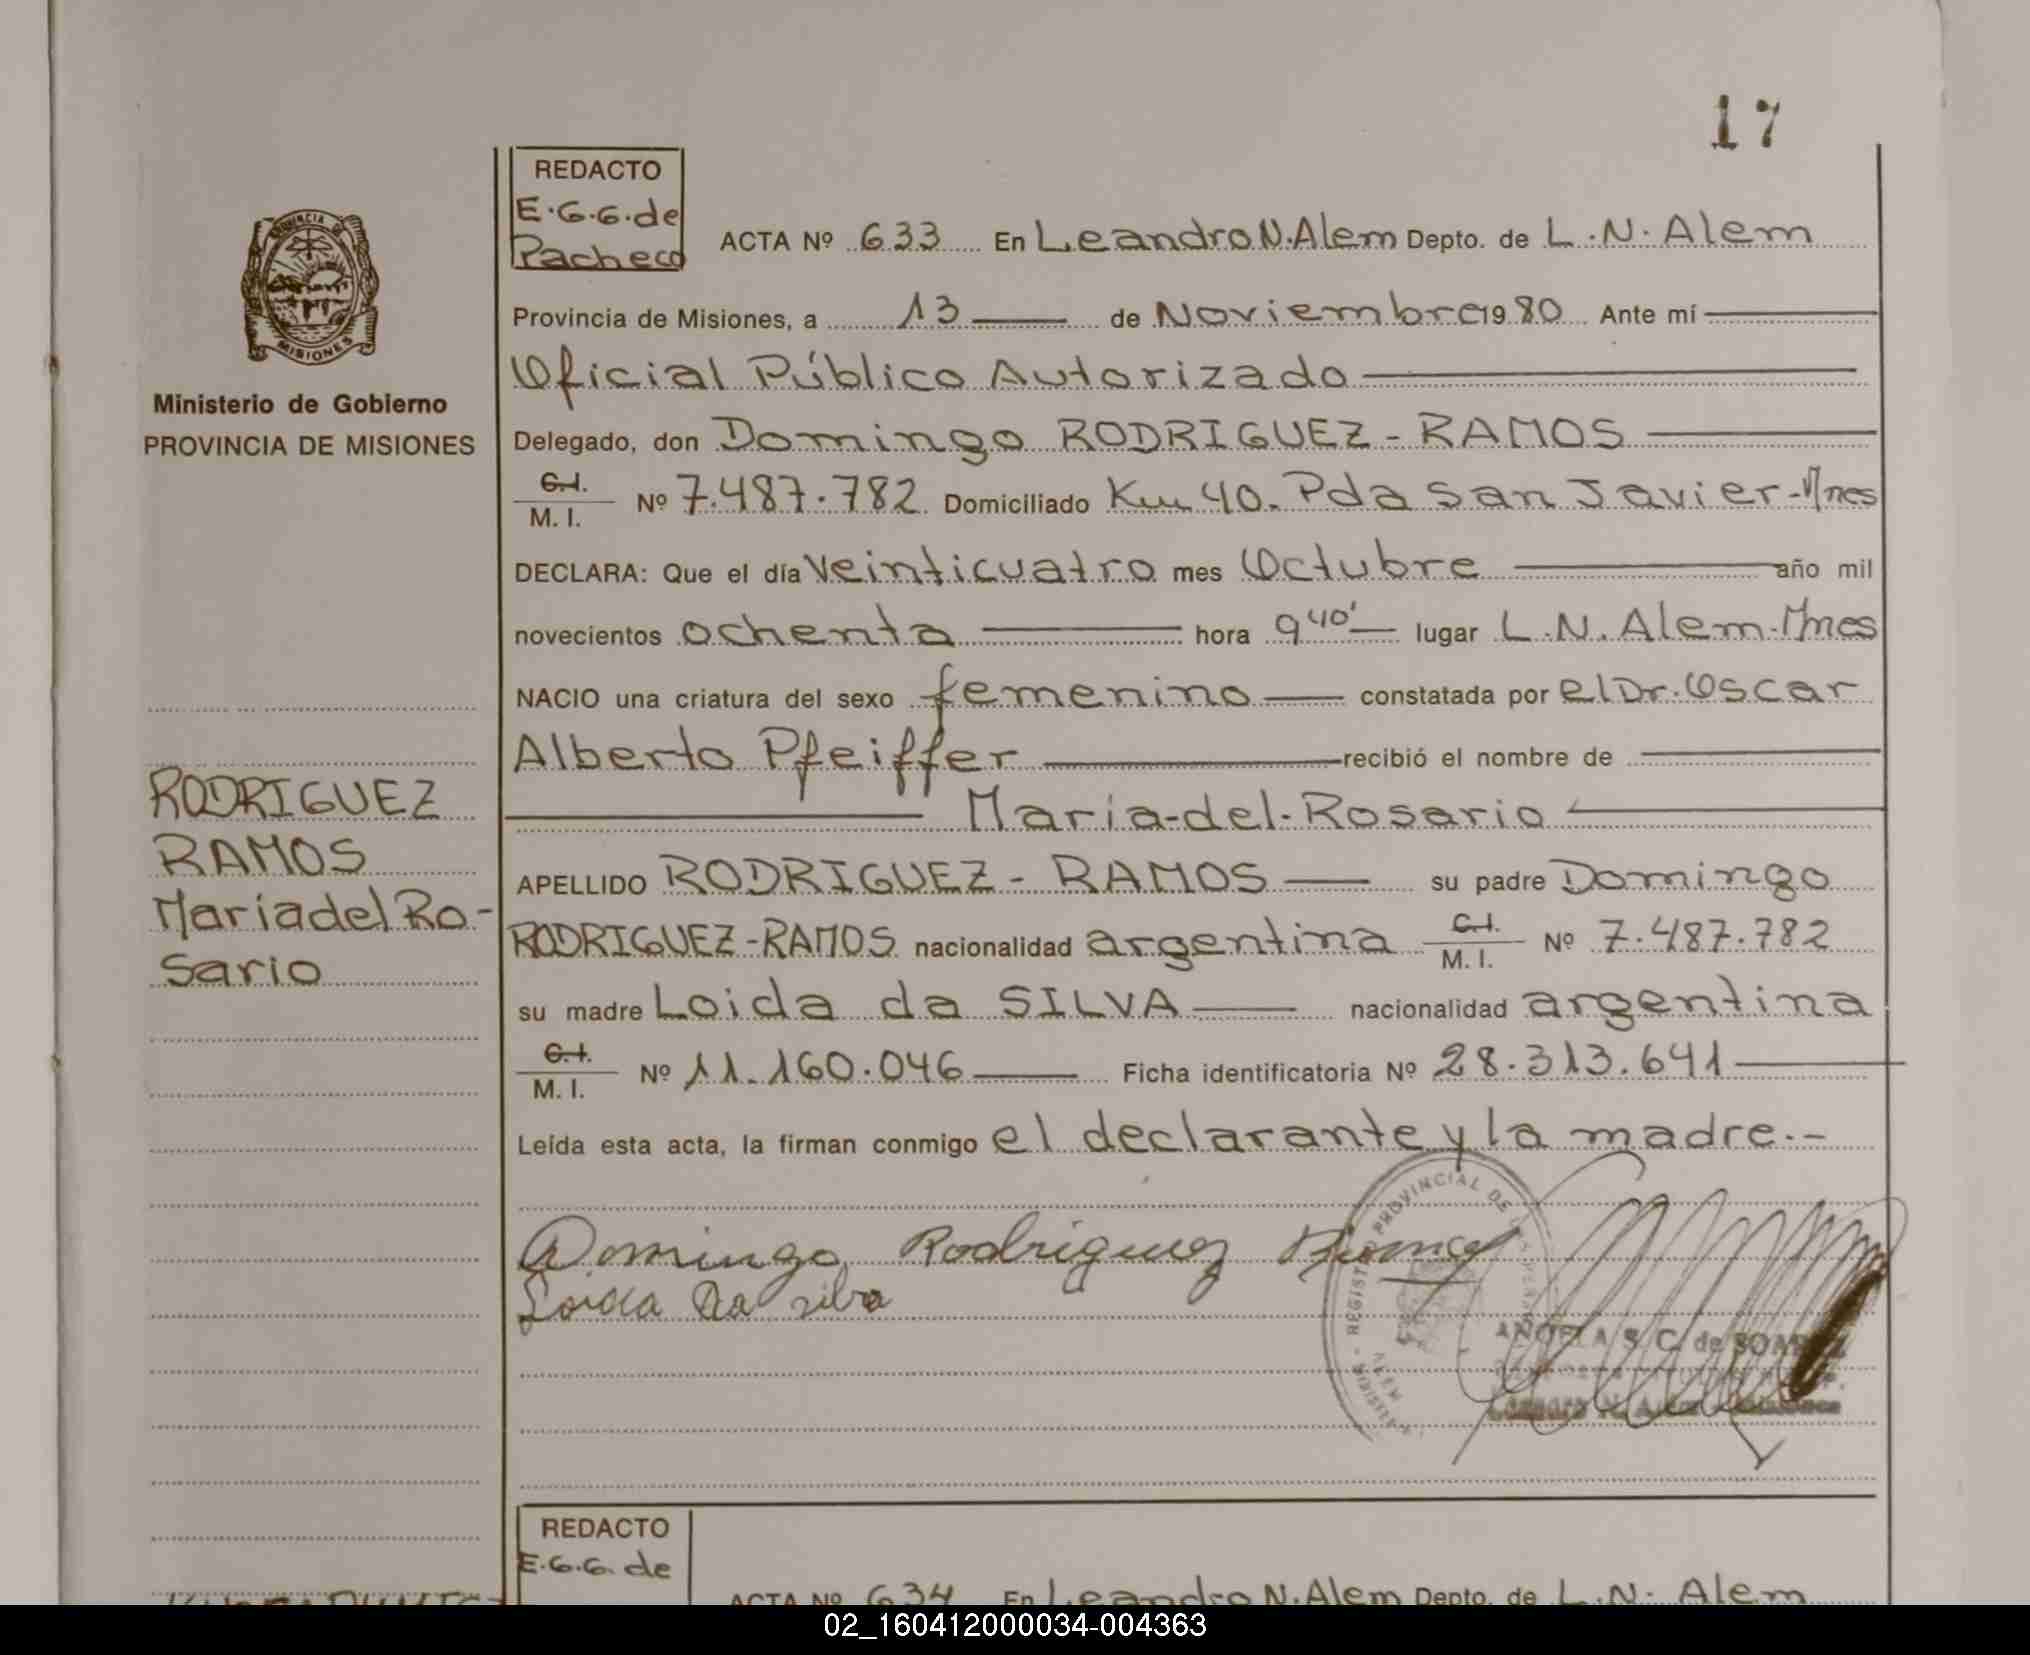 17
REDACTO
E.G.G. de
Pacheco
ACTA Nº 633 En Leandro N. Alem Depto. de L.N. Alem
PROVINCIA DE
MISIONES
Provincia de Misiones, a 13 de Noviembre 1980 Ante mí
Oficial Público Autorizado
Ministerio de Gobierno
PROVINCIA DE MISIONES
Delegado, don Domingo RODRIGUEZ - RAMOS
C.I.
M. I. Nº 7.487.782 Domiciliado Km 40. Pda San Javier-Mnes
DECLARA: Que el día Veinticuatro mes Octubre año mil
novecientos ochenta hora 9 40' lugar L.N. Alem-Mnes
NACIO una criatura del sexo femenino constatada por el Dr. Oscar
Alberto Pfeiffer recibió el nombre de
María-del-Rosario
RODRIGUEZ
RAMOS
María del Ro-
sario
APELLIDO RODRIGUEZ - RAMOS su padre Domingo
RODRIGUEZ-RAMOS nacionalidad argentina C.I. M. I. Nº 7.487.782
su madre Loida da SILVA nacionalidad argentina
C.I.
M. I. Nº 11.160.046 Ficha identificatoria Nº 28.313.641
Leída esta acta, la firman conmigo el declarante y la madre.-
Domingo Rodriguez
Loida Da silva
REGISTRO PROVINCIAL DE
S. C. de
REDACTO
E.G.G. de
ACTA Nº 634 En Leandro N. Alem Depto. de L.N. Alem
02_160412000034-004363